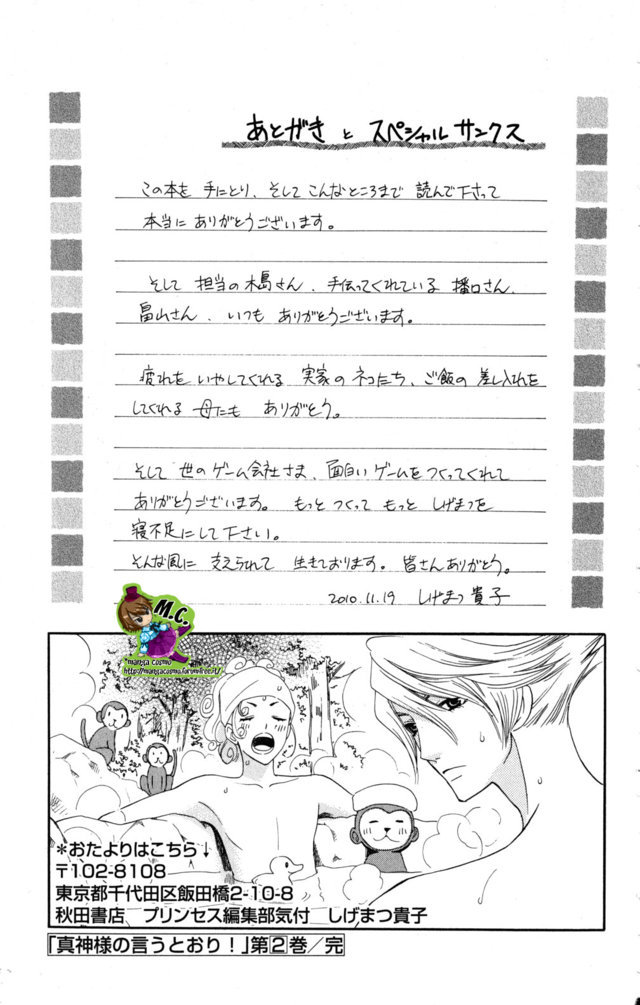 あとがき と スペシャル サンクス
この本を 手にとり、そして こんなところまで 読んで下さって
本当に ありがとうございます。
そして 担当の木島さん、手伝ってくれている 播口さん、
畠山さん、いつも ありがとうございます。
疲れを いやしてくれる 実家のネコたち、ご飯の 差し入れを
してくれる 母にも ありがとう。
そして 世のゲーム会社さま、面白い ゲームを つくってくれて
ありがとうございます。 もっと つくって もっと しげまつを
寝不足にして下さい。
そんな風に 支えられて 生きております。皆さんありがとう。
2010.11.19 しげまつ 貴子
M.C.
manga cosmo
http://mangacosmo.forumfree.it/
*おたよりはこちら↓
〒102-8108
東京都千代田区飯田橋2-10-8
秋田書店 プリンセス編集部気付 しげまつ貴子
「真神様の言うとおり!」第2巻/完